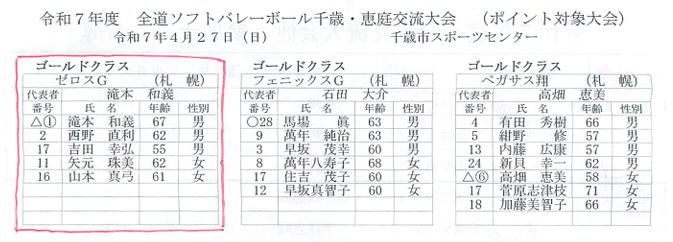 令和７年度　全道ソフトバレーボール千歳・恵庭交流大会　（ポイント対象大会）
令和７年４月２７日（日）　千歳市スポーツセンター
ゴールドクラス
ゼロスＧ　（札　幌）
代表者　滝本　和義
番号　氏　名　年齢　性別
△①　滝本　和義　67　男
2　西野　直利　62　男
17　吉田　幸弘　55　男
11　矢元　珠美　62　女
16　山本　真弓　61　女
ゴールドクラス
フェニックスＧ　（札　幌）
代表者　石田　大介
番号　氏　名　年齢　性別
○28　馬場　眞　63　男
9　萬年　純治　63　男
3　早坂　茂幸　60　男
8　萬年八寿子　68　女
17　住吉　茂子　60　女
12　早坂真智子　60　女
ゴールドクラス
ペガサス翔　（札　幌）
代表者　高畑　恵美
番号　氏　名　年齢　性別
4　有田　秀樹　66　男
5　紺野　修　57　男
13　内藤　広康　57　男
24　新貝　幸一　62　男
△⑥　高畑　恵美　58　女
17　菅原志津枝　71　女
18　加藤美智子　66　女